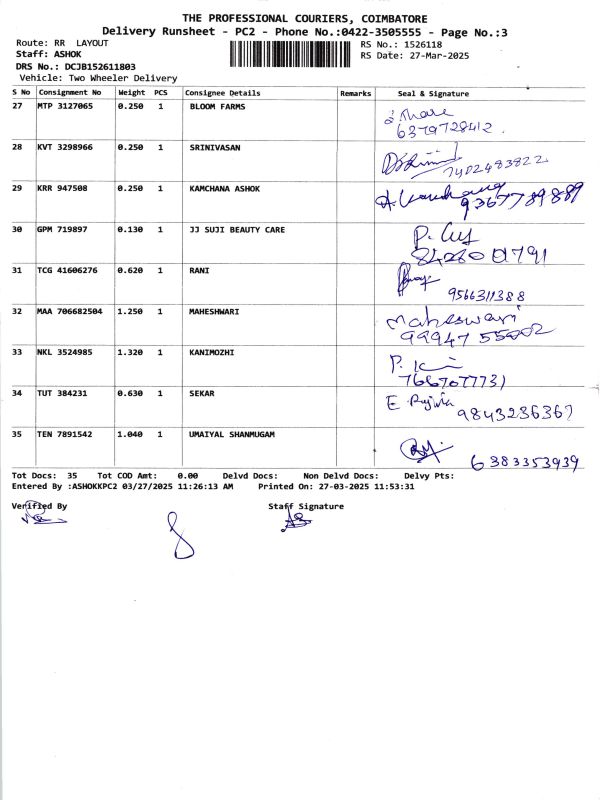 THE PROFESSIONAL COURIERS, COIMBATORE
Delivery Runsheet - PC2 - Phone No.:0422-3505555 - Page No.:3
Route: RR LAYOUT RS No.: 1526118
Staff: ASHOK RS Date: 27-Mar-2025
DRS No.: DCJB152611803
Vehicle: Two Wheeler Delivery
S No Consignment No Weight PCS Consignee Details Remarks Seal & Signature
27 MTP 3127065 0.250 1 BLOOM FARMS
6379728412
28 KVT 3298966 0.250 1 SRINIVASAN
7402483822
29 KRR 947508 0.250 1 KAMCHANA ASHOK
9367789889
30 GPM 719897 0.130 1 JJ SUJI BEAUTY CARE
31 TCG 41606276 0.620 1 RANI
9566311388
32 MAA 706682504 1.250 1 MAHESHWARI Maheswari
99947 55002
33 NKL 3524985 1.320 1 KANIMOZHI
7667077731
34 TUT 384231 0.630 1 SEKAR
9843236367
35 TEN 7891542 1.040 1 UMAIYAL SHANMUGAM
6383353939
Tot Docs: 35 Tot COD Amt: 0.00 Delvd Docs: Non Delvd Docs: Delvy Pts:
Entered By :ASHOKKPC2 03/27/2025 11:26:13 AM Printed On: 27-03-2025 11:53:31
Verified By Staff Signature